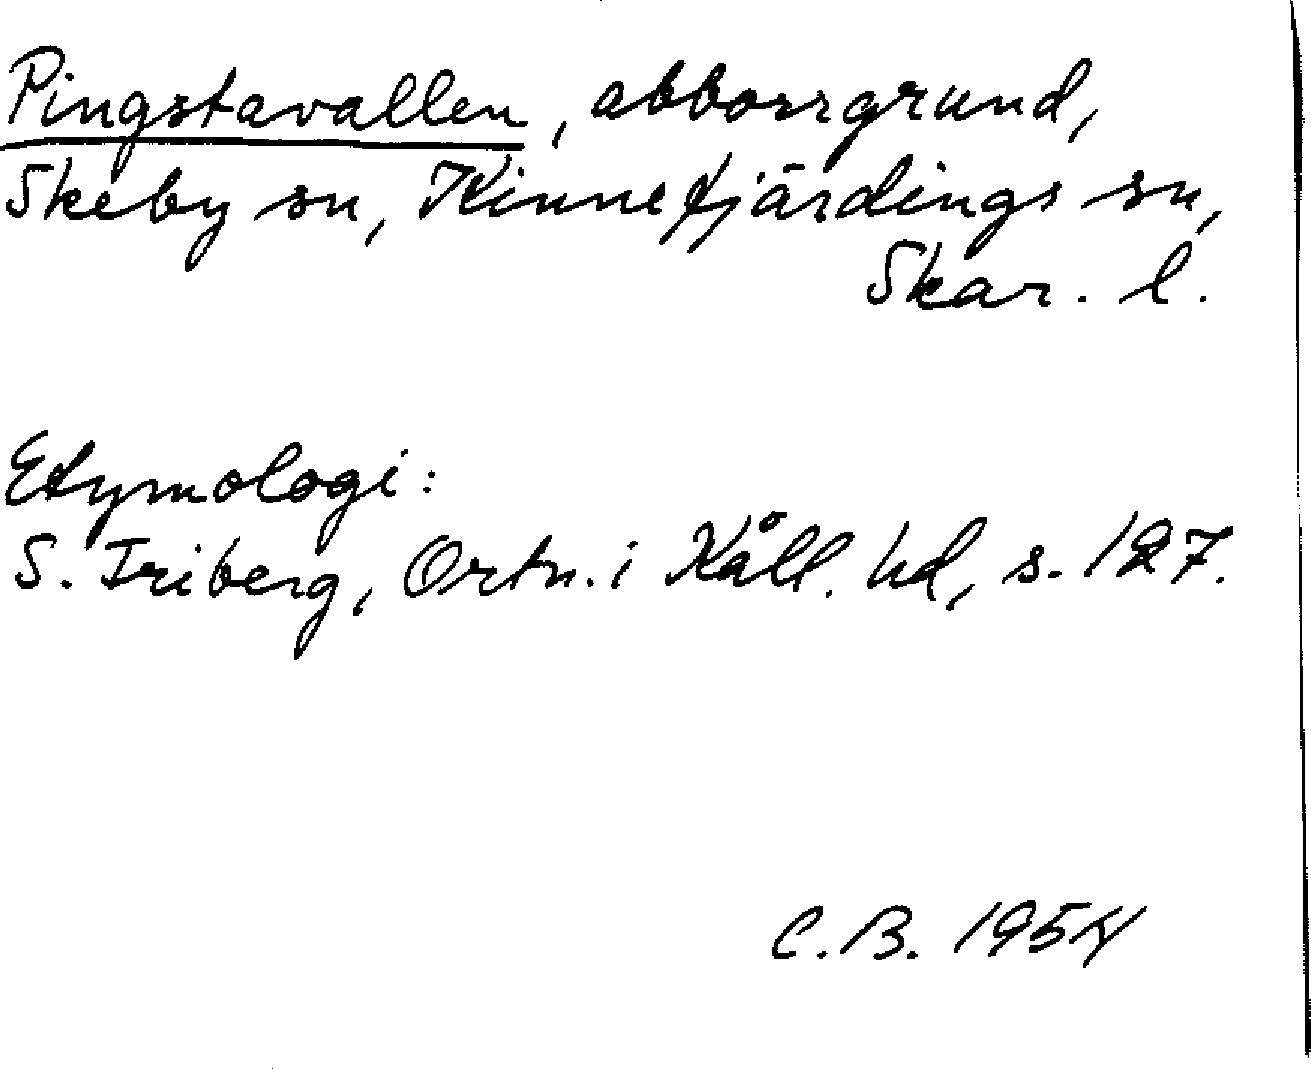 Pingstavallen, abborrgrund,
Skeby sn, Kinnefjärdings sn,
Skar. l.
Etymologi:
S. Friberg, Ortn. i Kåll. hd, s. 127.
C. B. 1954